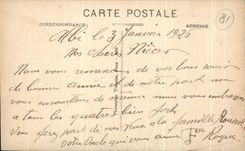 CARTE POSTALE
CORRESPONDANCE ADRESSE
81
Albi le 3 Janvier 1926
Nos chères Nièces
Nous vous remercions de vos bons vœux
de bonne année, et de notre part nous
vous en souhaitons de même nous vous embrassons
a tous les quatres bien fort.
Vous ferez part de nos vœux a la famille
votre Oncle qui vous aime
Roques